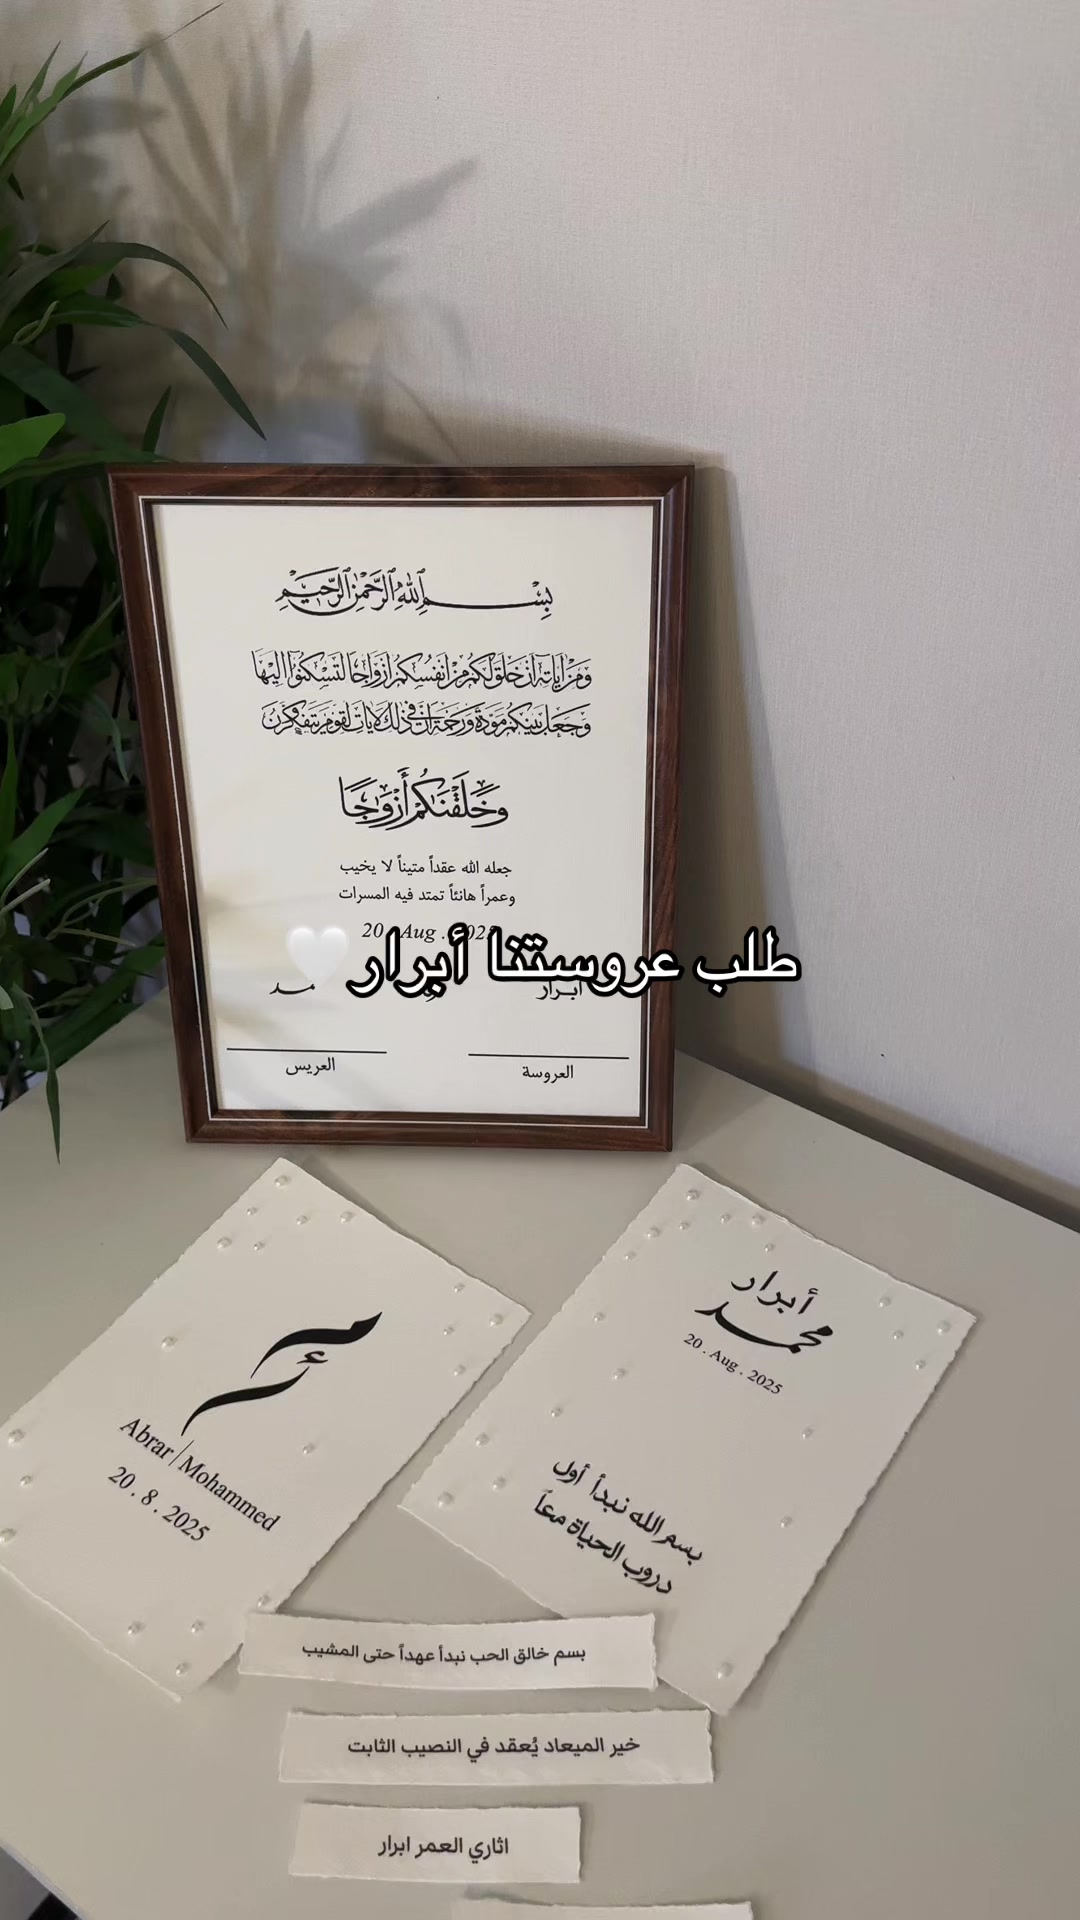 بِسْمِ اللهِ الرَّحْمٰنِ الرَّحِيْمِ
وَمِنْ آيَاتِهِ أَنْ خَلَقَ لَكُمْ مِنْ أَنْفُسِكُمْ أَزْوَاجًا لِتَسْكُنُوا إِلَيْهَا
وَجَعَلَ بَيْنَكُمْ مَوَدَّةً وَرَحْمَةً إِنَّ فِي ذَلِكَ لَآيَاتٍ لِقَوْمٍ يَتَفَكَّرُونَ
وَخَلَقْنَاكُمْ أَزْوَاجًا
جعله الله عقداً متيناً لا يخيب
وعمراً هانئاً تمتد فيه المسرات
20 . Aug . 2025
طلب عروستنا أبرار 🤍
أبرار
العروسة
العريس
أبرار
محمد
20 . Aug . 2025
بسم الله نبدأ أول
دروب الحياة معاً
Abrar | Mohammed
20 . 8 . 2025
بسم خالق الحب نبدأ عهداً حتى المشيب
خير الميعاد يُعقد في النصيب الثابت
اثاري العمر ابرار